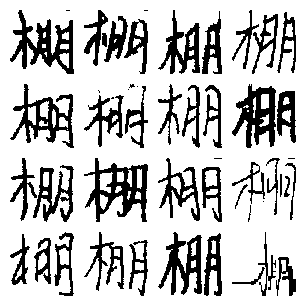 棚棚棚棚
棚棚棚棚
棚棚棚棚
棚棚棚棚